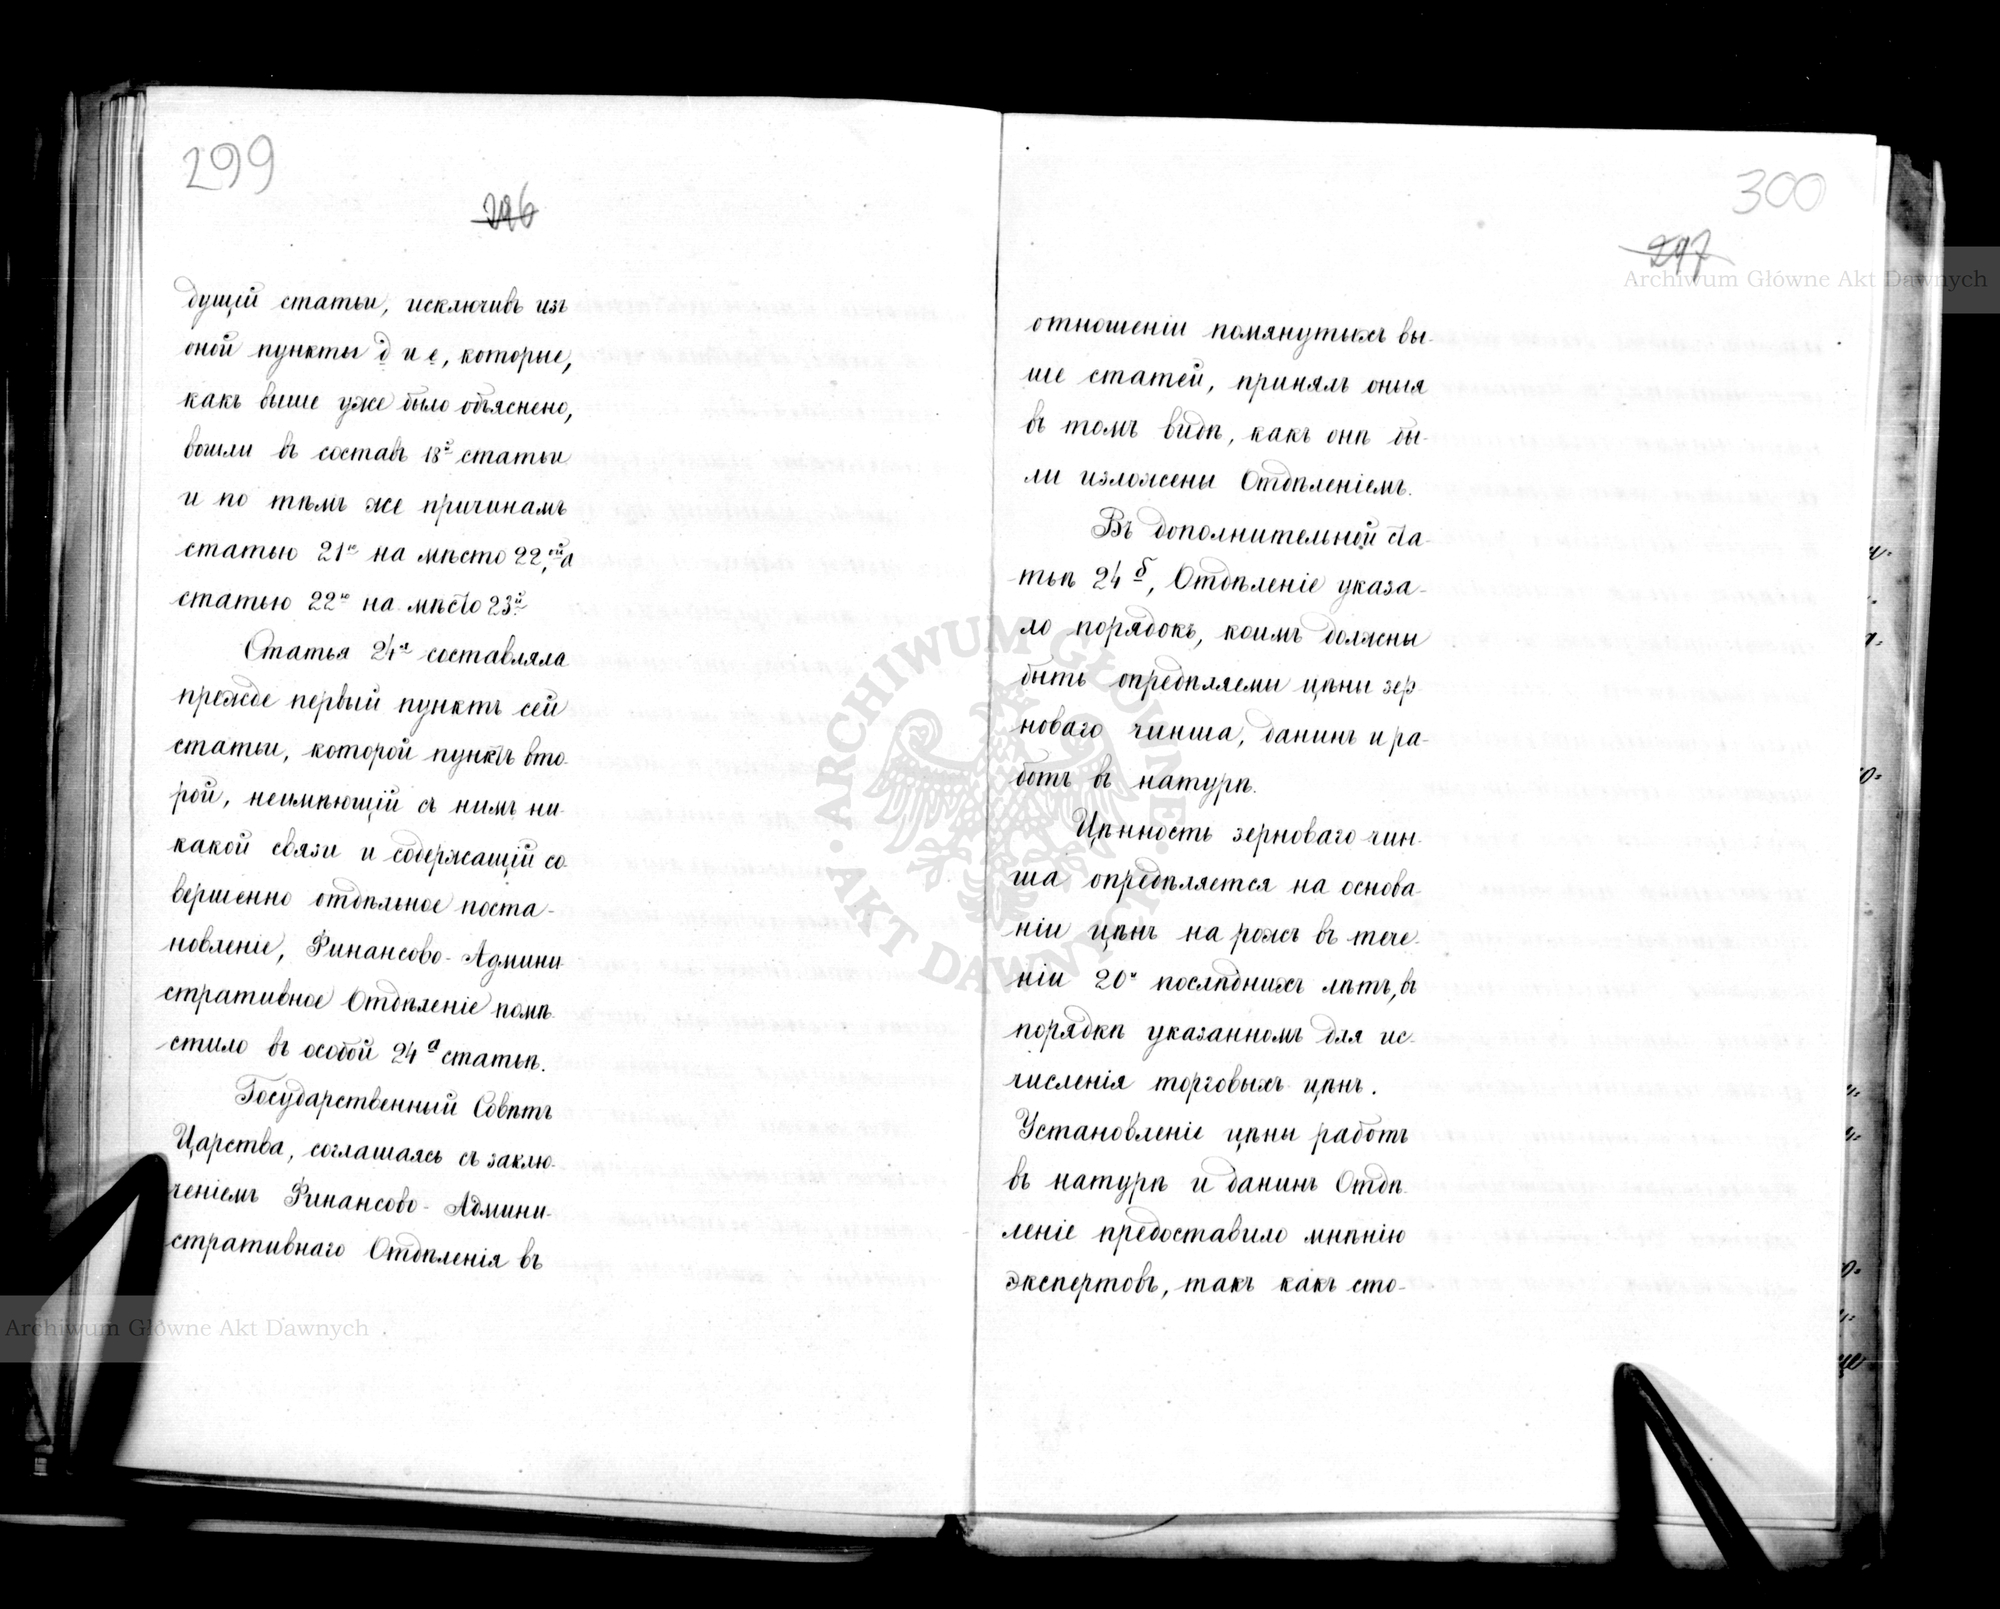 299
296
дущей статьи, исключивъ изъ
оной пункты д и е, которые,
какъ выше уже было объяснено,
вошли въ составъ 18й статьи
и по тѣмъ же причинамъ
статью 21ю на мѣсто 22ой, а
статью 22ю на мѣсто 23й
Статья 24я составляла
прежде первый пунктъ сей
статьи, которой пунктъ вто-
рой, неимѣющій съ нимъ ни-
какой связи и содержащій со-
вершенно отдѣльное поста-
новленіе, Финансово-Админи-
стративное Отдѣленіе помѣ-
стило въ особой 24а статьѣ.
Государственный Совѣтъ
Царства, соглашаясь съ заклю-
ченіемъ Финансово-Админи-
стративнаго Отдѣленія въ
300
297
отношеніи помянутыхъ вы-
ше статей, принялъ оныя
въ томъ видѣ, какъ онѣ бы-
ли изложены Отдѣленіемъ.
Въ дополнительной ста-
тьѣ 24б, Отдѣленіе указа-
ло порядокъ, коимъ должны
быть опредѣляемы цѣны зер
новаго чинша, данинъ и ра-
ботъ въ натурѣ.
Цѣнность зерноваго чин-
ша опредѣляется на основа-
ніи цѣнъ на рожь въ тече-
ніи 20и послѣднихъ лѣтъ, въ
порядкѣ указанномъ для ис-
численія торговыхъ цѣнъ.
Установленіе цѣны работъ
въ натурѣ и данинъ Отдѣ-
леніе предоставило мнѣнію
экспертовъ, такъ какъ сто-
Archiwum Główne Akt Dawnych
Archiwum Główne Akt Dawnych
ARCHIWUM GŁÓWNE · AKT DAWNYCH ·